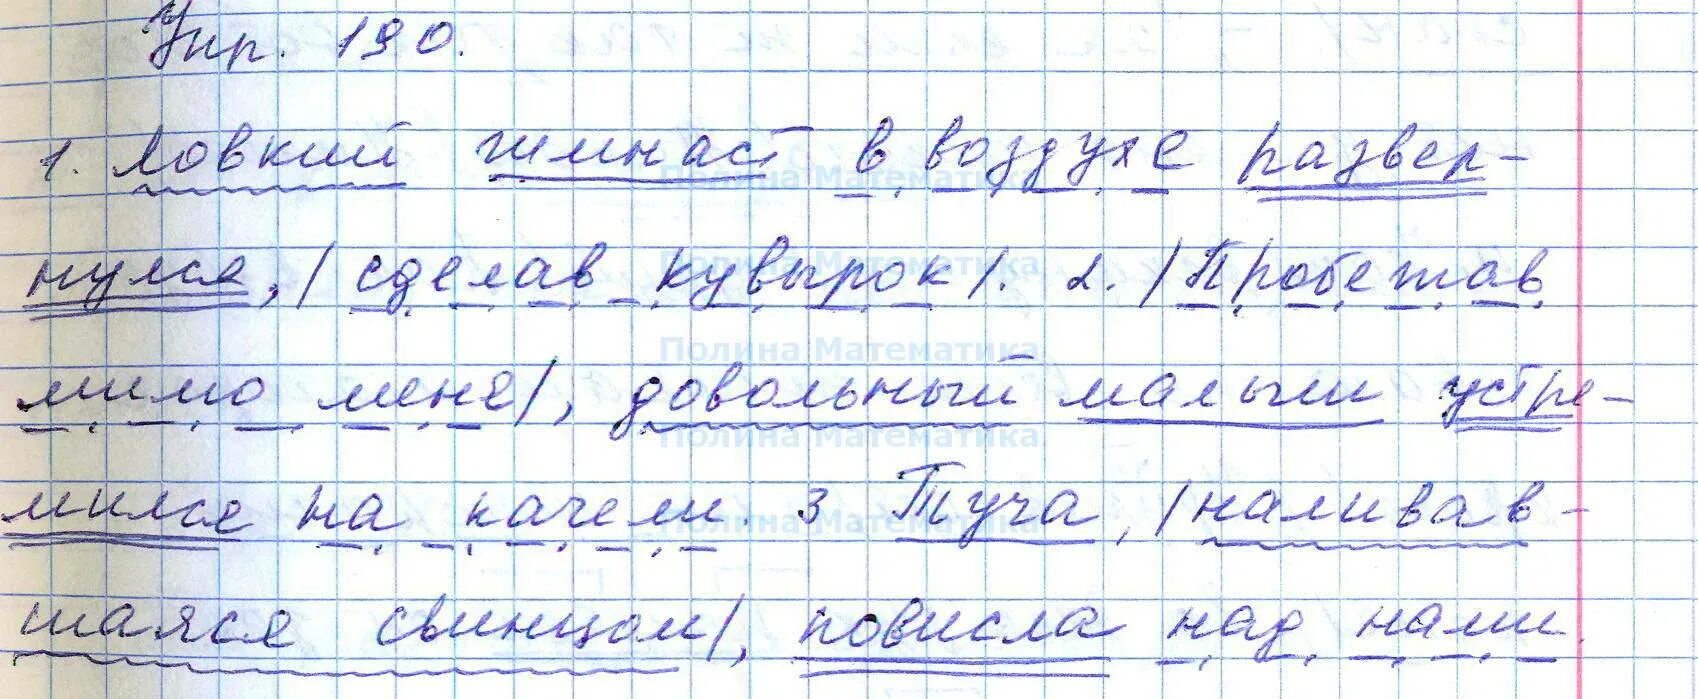 Упр. 190.
1. Ловкий гимнаст в воздухе развер-
нулся, / сделав кувырок /. 2. / Пробежав
мимо меня /, довольный малыш устре-
мился на качели. 3 Туча, / наливав-
шаяся свинцом /, повисла над нами.
Полина Математика
Полина Математика
Полина Математика
Полина Математика
Полина Математика